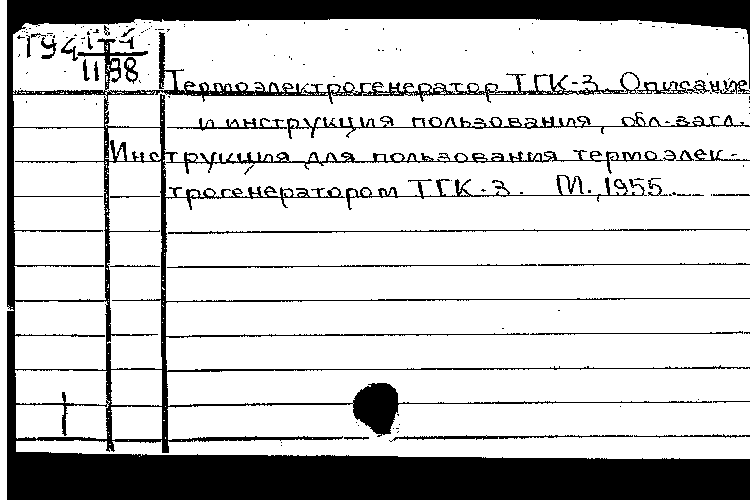 Т94 Т-4
1198
Термоэлектрогенератор ТГК-3. Описание
и инструкция пользования, обл.-загл.
Инструкция для пользования термоэлек-
трогенератором ТГК-3. М., 1955.